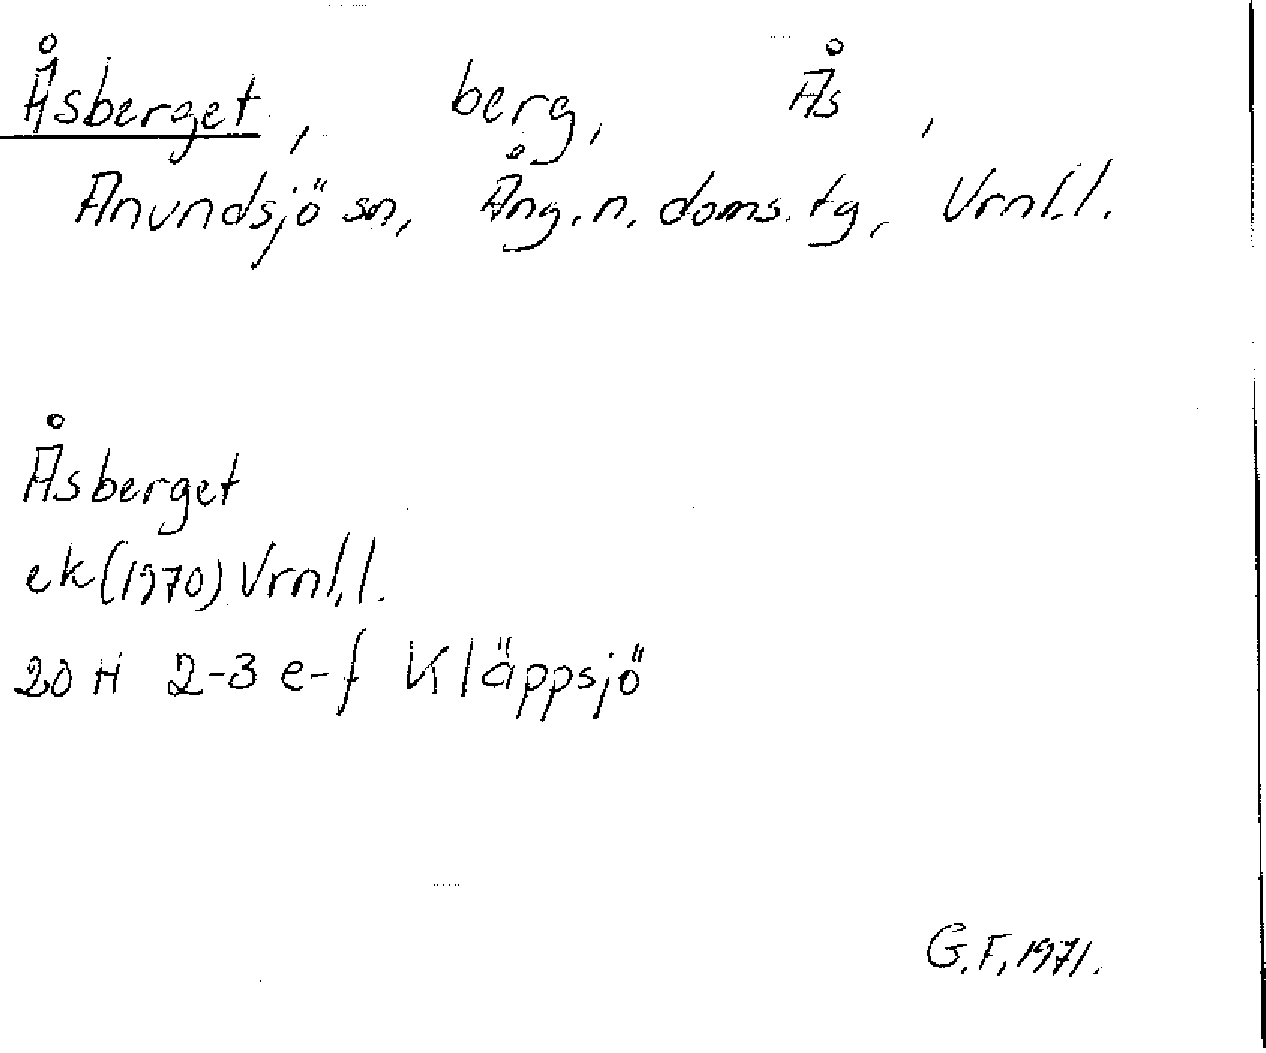 Åsberget, berg, Ås,
Anundsjö sn, Ång. n. doms. tg, Vrnl. l.
Åsberget
ek (1970) Vrnl. l.
20 H 2-3 e-f Kläppsjö
G. F, 1971.